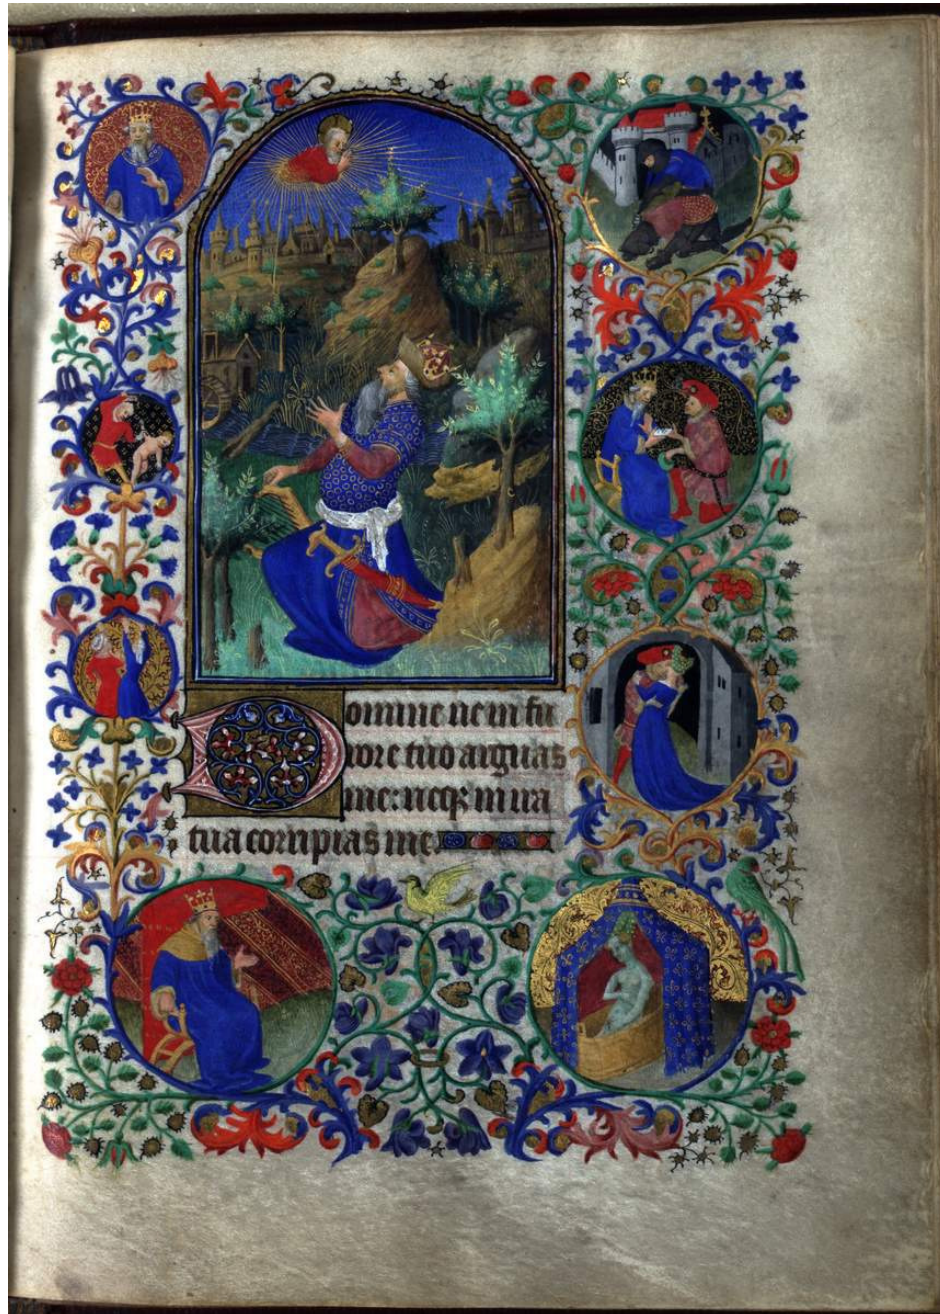 Domine ne in fu
rore tuo arguas
me: neqz in ira
tua corripias me